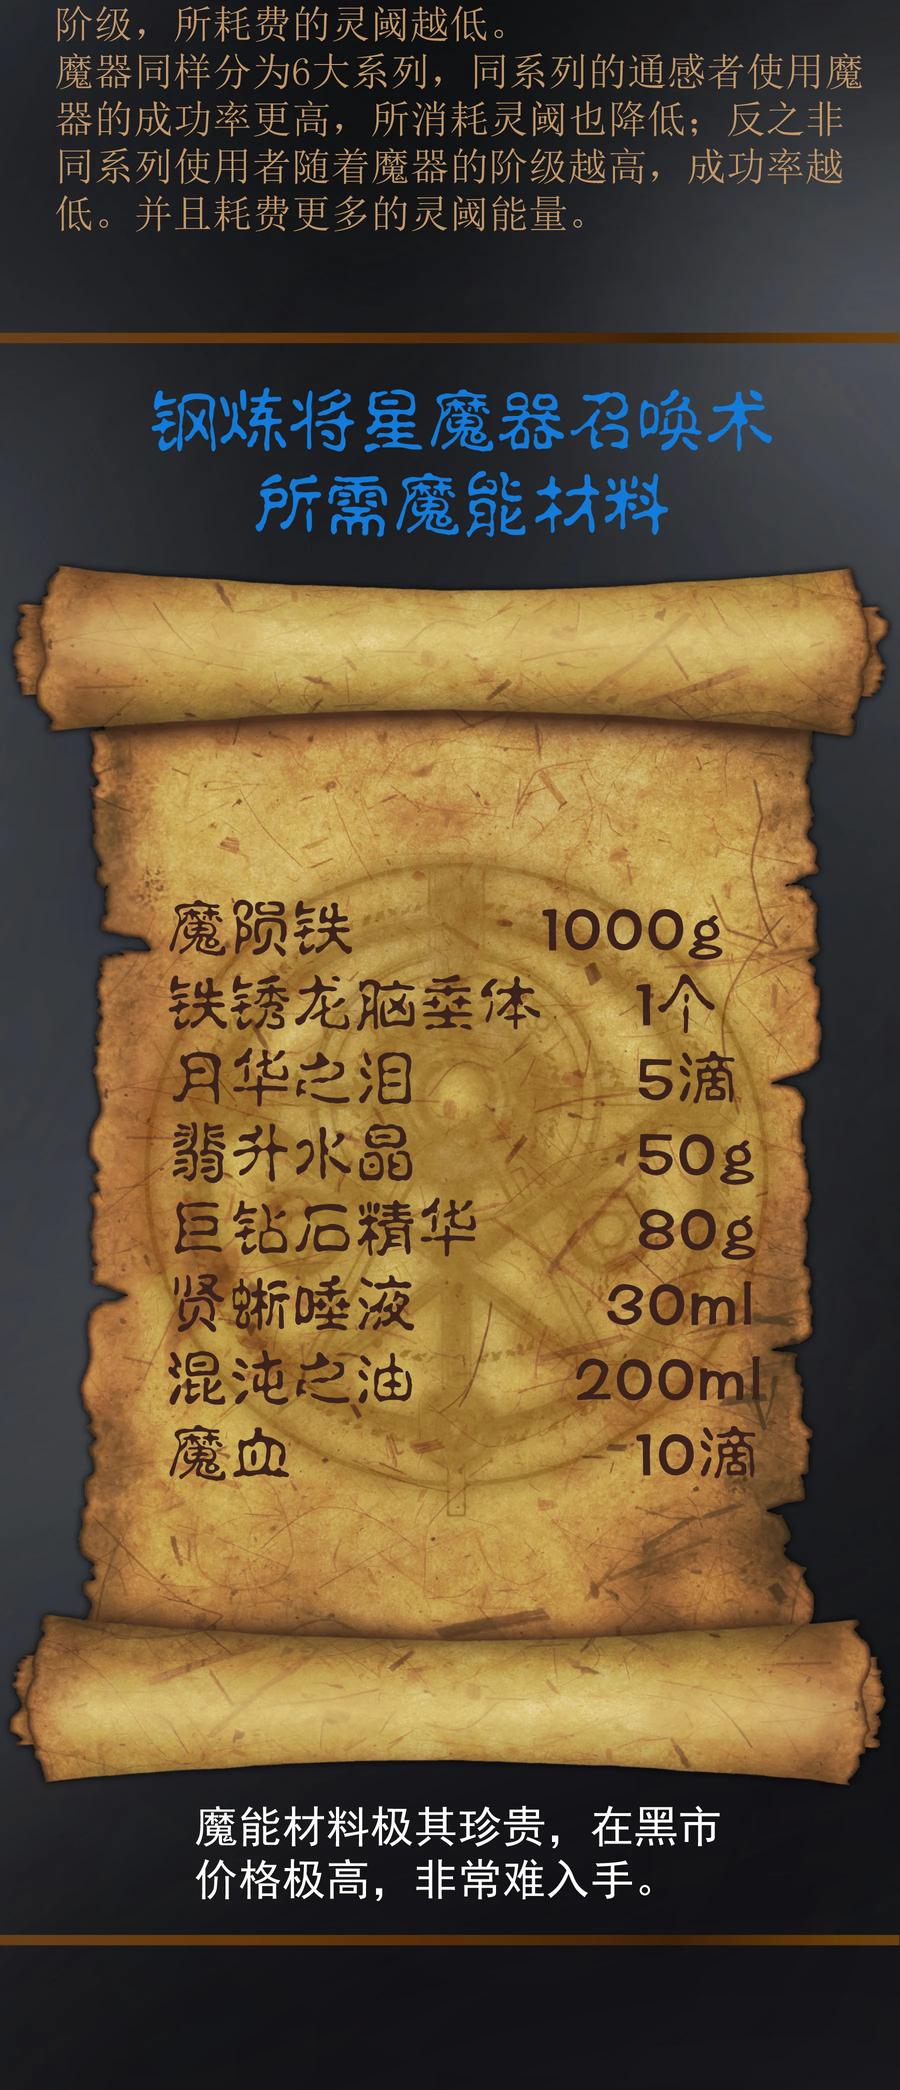 阶级，所耗费的灵阈越低。
魔器同样分为6大系列，同系列的通感者使用魔
器的成功率更高，所消耗灵阈也降低；反之非
同系列使用者随着魔器的阶级越高，成功率越
低。并且耗费更多的灵阈能量。
钢炼将星魔器召唤术
所需魔能材料
魔陨铁 1000g
铁锈龙脑垂体 1个
月华之泪 5滴
翡升水晶 50g
巨钻石精华 80g
贤蜥唾液 30ml
混沌之油 200ml
魔血 10滴
魔能材料极其珍贵，在黑市
价格极高，非常难入手。